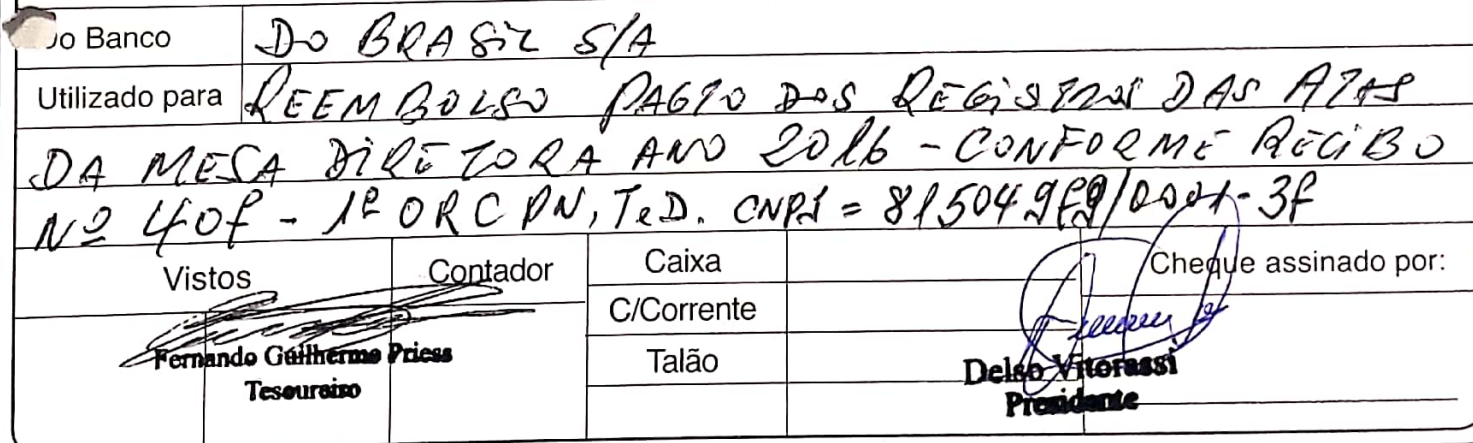 Do Banco DO BRASIL S/A
Utilizado para REEMBOLSO PAGTO DOS REGISTROS DAS ATAS
DA MESA DIRETORA ANO 2016 - CONFORME RECIBO
Nº 408 - 1º ORCPN, TeD. CNPJ = 81504989/0001-38
Vistos Contador Caixa Cheque assinado por:
C/Corrente
Talão
Fernando Guilherme Priess
Tesoureiro
Delso Vitorassi
Presidente